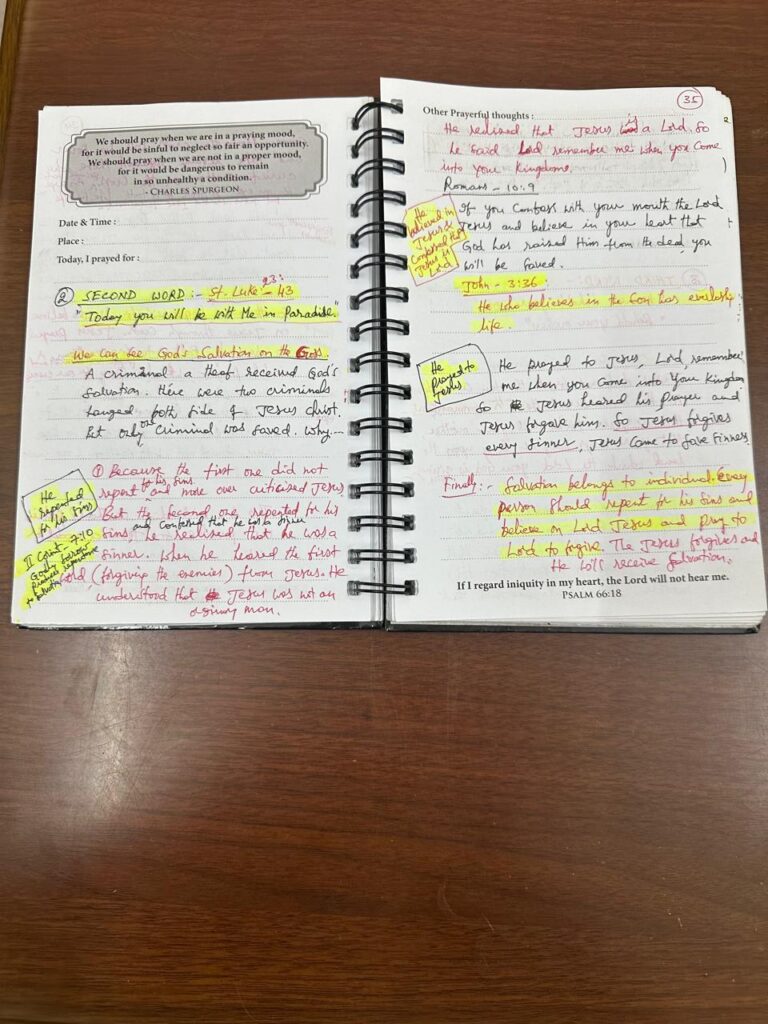 We should pray when we are in a praying mood,
for it would be sinful to neglect so fair an opportunity.
We should pray when we are not in a proper mood,
for it would be dangerous to remain
in so unhealthy a condition.
- CHARLES SPURGEON
Date & Time :
Place :
Today, I prayed for :
② SECOND WORD :- St. Luke 23:- 43
"Today you will be with Me in Paradise."
We can see God's Salvation on the Cross.
A criminal a theof received God's
Salvation. Here were two criminals
hanged both side of Jesus Christ.
But only one Criminal was saved. Why -
① Because the first one did not
repent for his sins. and more over criticised Jesus
But the second one repented for his
sins, and confessed that he was a sinner he realised that he was a
sinner. When he heared the first
word (forgiving the enemies) from Jesus. He
understood that Jesus was not an
He
repented
for his sins
II Corint- 7:10
Godly sorrow
produces repentance
to salvation
man.
35
Other Prayerful thoughts :
He realised that Jesus is a Lord. So
he said Lord remember me when you come
into your Kingdome.
Romans - 10:9
If you Confess with your mouth the Lord
Jesus and believe in your heart that
God has raised Him from the dead, you
will be saved.
He
believed in
Jesus &
Confessed that
Jesus is
Lord
John - 3:36
He who believes in the Son has everlasting
life.
He
Prayed to
Jesus
He prayed to Jesus, Lord, remember
me when you come into Your Kingdom
So Jesus heared his prayer and
Jesus forgave him. So Jesus forgives
every sinner, Jesus came to save sinners
Finally:- Salvation belongs to individual. Every
person should repent for his sins and
believe on Lord Jesus and pray to
Lord to forgive. The Jesus forgives and
He will receive Salvation.
If I regard iniquity in my heart, the Lord will not hear me.
PSALM 66:18